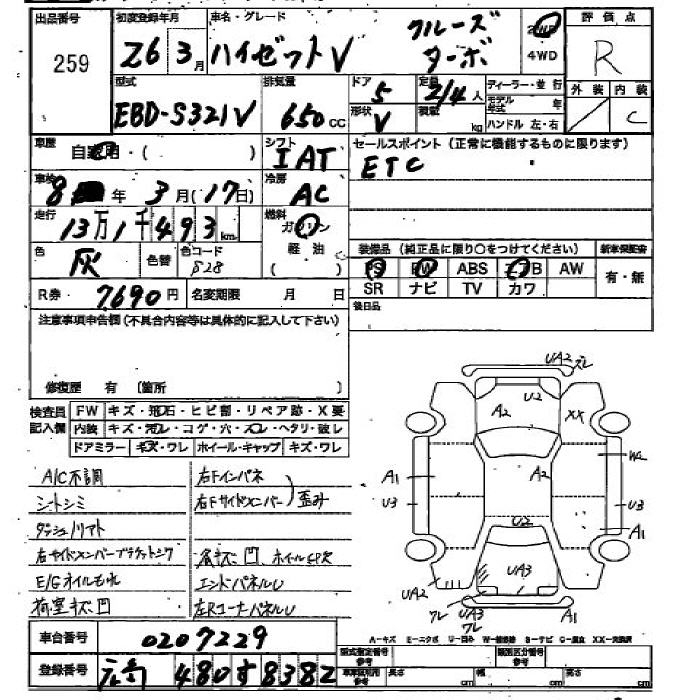 出品番号 初度登録年月 車名・グレード クルーズ 2WD 評価点
259 26年3月 ハイゼットV ターボ 4WD R
型式 排気量 ドア 定員 ディーラー・並行 外装 内装
EBD-S321V 650cc 5 2/4人 モデル年式 年 C
形状 V 積載 kg ハンドル 左・右
車歴 自家用・( ) シフト IAT セールスポイント(正常に機能するものに限ります)
ETC
車検 8年3月(17日) 冷房 AC
走行 13万1千493km 燃料 ガソリン
色 灰 色替 色コード S28 軽油 ( )
装備品(純正品に限り○をつけてください) 新車保証書
PS PW ABS エアB AW 有・無
SR ナビ TV カワ
R券 7690円 名変期限 月 日 後日品
注意事項申告欄(不具合内容等は具体的に記入して下さい)
修復歴 有 〔箇所 〕
検査員記入欄 FW キズ・飛石・ヒビ割・リペア跡・X要
内装 キズ・汚レ・コゲ・穴・スレ・ヘタリ・破レ
ドアミラー キズ・ワレ ホイール・キャップ キズ・ワレ
A/C不調 右Fインパネ
シートシミ 右Fサイドメンバー 歪み
ダッシュノリアト
右サイドメンバーブラケットシワ 各キズ凹、ホイールCP欠
E/Gオイルもれ エンドパネルU
荷室キズ凹 左RコーナーパネルU
UA2 ズレ
U2
A2 XX
W2
A1 A2
U3 U3
A1
U2
UA2 UA3
ワレ UA3 A1
ワレ
A-キズ E-エクボ U-凹み W-補修跡 S-サビ C-腐食 XX-交換済
車台番号 0207229 型式指定番号 参考 類別区分番号 参考
登録番号 480す8382 車庫証明用 参考 長さ cm 幅 cm 高さ cm